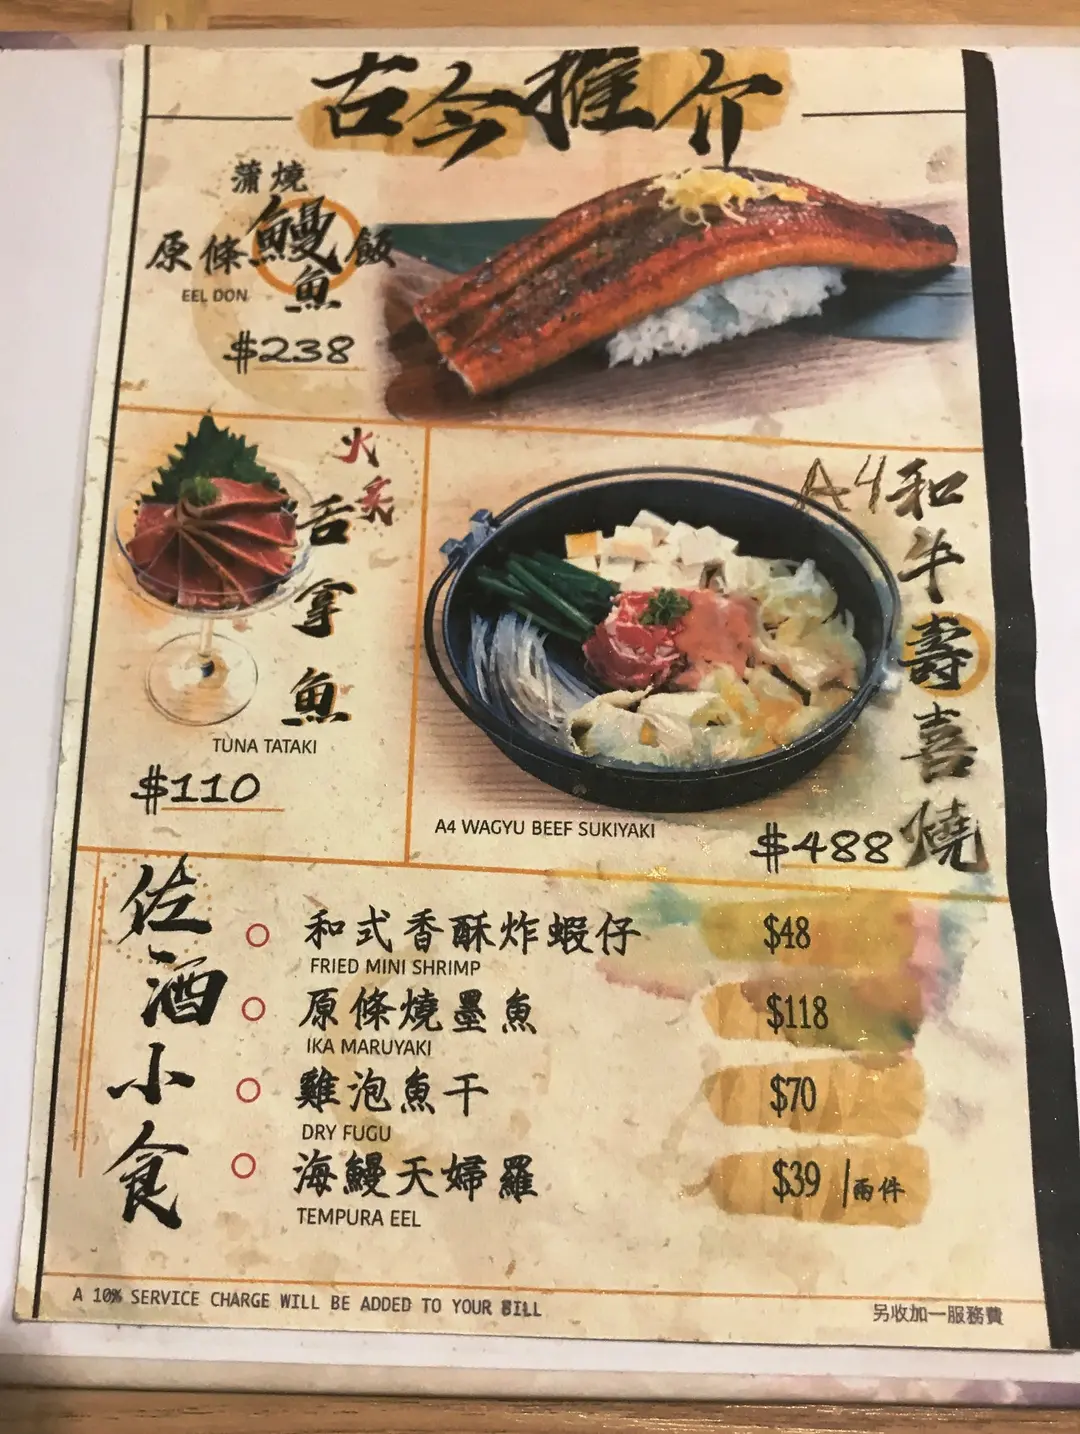 古今推介
蒲燒
原條鰻魚飯
EEL DON
$238
火炙
吞拿魚
TUNA TATAKI
$110
A4和牛壽喜燒
A4 WAGYU BEEF SUKIYAKI
$488
佐酒小食
和式香酥炸蝦仔 $48
FRIED MINI SHRIMP
原條燒墨魚 $118
IKA MARUYAKI
雞泡魚干 $70
DRY FUGU
海鰻天婦羅 $39 /兩件
TEMPURA EEL
A 10% SERVICE CHARGE WILL BE ADDED TO YOUR BILL
另收加一服務費